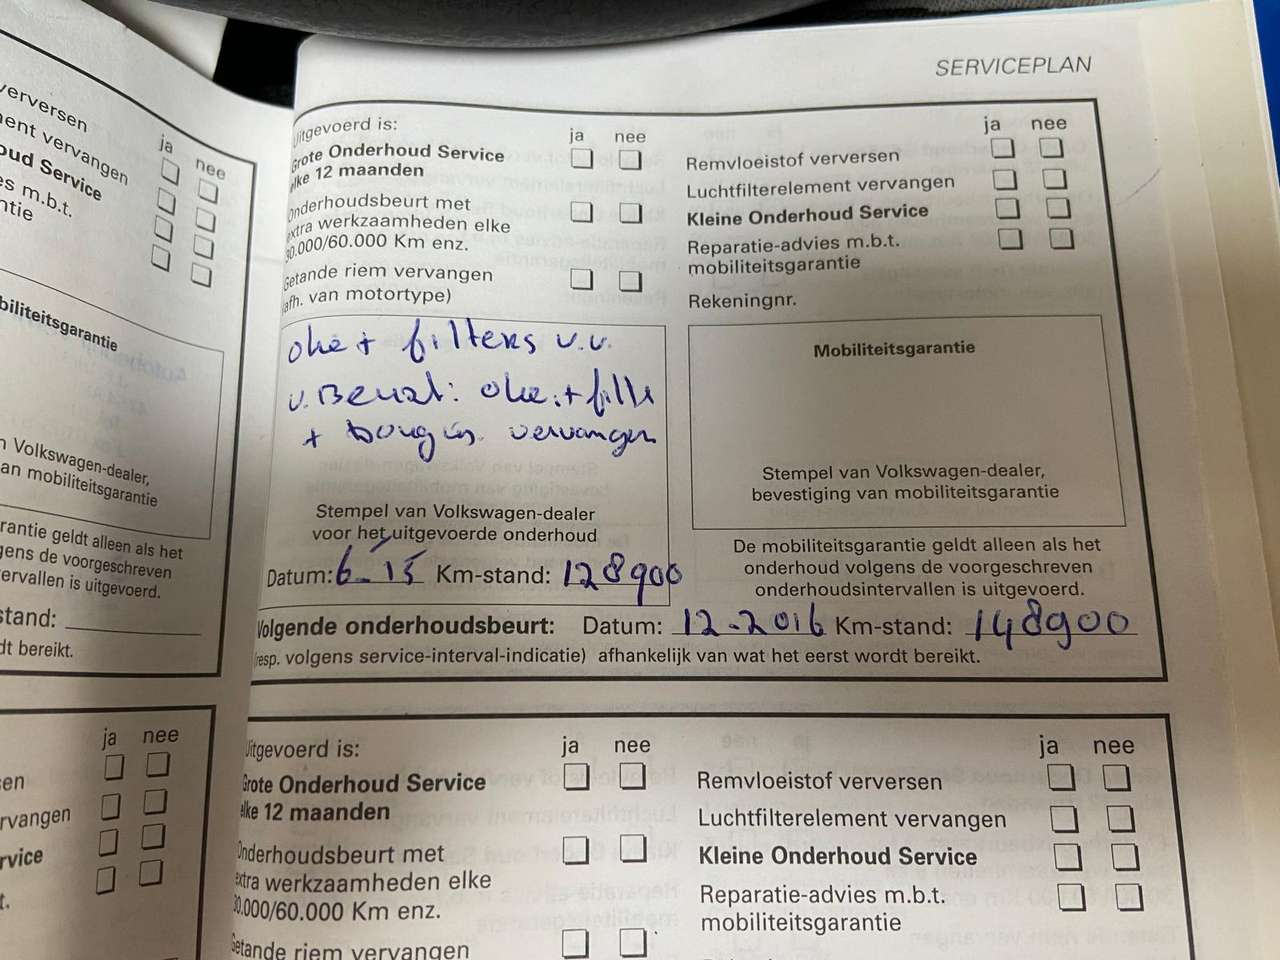 SERVICEPLAN
verversen
ent vervangen
oud Service
es m.b.t.
ntie
ja nee
biliteitsgarantie
n Volkswagen-dealer,
an mobiliteitsgarantie
rantie geldt alleen als het
gens de voorgeschreven
ervallen is uitgevoerd.
stand:
dt bereikt.
ja nee
sen
rvangen
rvice
t.
Uitgevoerd is: ja nee
Grote Onderhoud Service
elke 12 maanden
Onderhoudsbeurt met
extra werkzaamheden elke
30.000/60.000 Km enz.
Getande riem vervangen
(afh. van motortype)
ja nee
Remvloeistof verversen
Luchtfilterelement vervangen
Kleine Onderhoud Service
Reparatie-advies m.b.t.
mobiliteitsgarantie
Rekeningnr.
olie + filters v.v.
+ vervangen
Stempel van Volkswagen-dealer
voor het uitgevoerde onderhoud
Datum: 6-15 Km-stand: 128900
Mobiliteitsgarantie
Stempel van Volkswagen-dealer,
bevestiging van mobiliteitsgarantie
De mobiliteitsgarantie geldt alleen als het
onderhoud volgens de voorgeschreven
onderhoudsintervallen is uitgevoerd.
Volgende onderhoudsbeurt: Datum: 12-2016 Km-stand: 148900
(resp. volgens service-interval-indicatie) afhankelijk van wat het eerst wordt bereikt.
Uitgevoerd is: ja nee
Grote Onderhoud Service
elke 12 maanden
Onderhoudsbeurt met
extra werkzaamheden elke
30.000/60.000 Km enz.
Getande riem vervangen
ja nee
Remvloeistof verversen
Luchtfilterelement vervangen
Kleine Onderhoud Service
Reparatie-advies m.b.t.
mobiliteitsgarantie